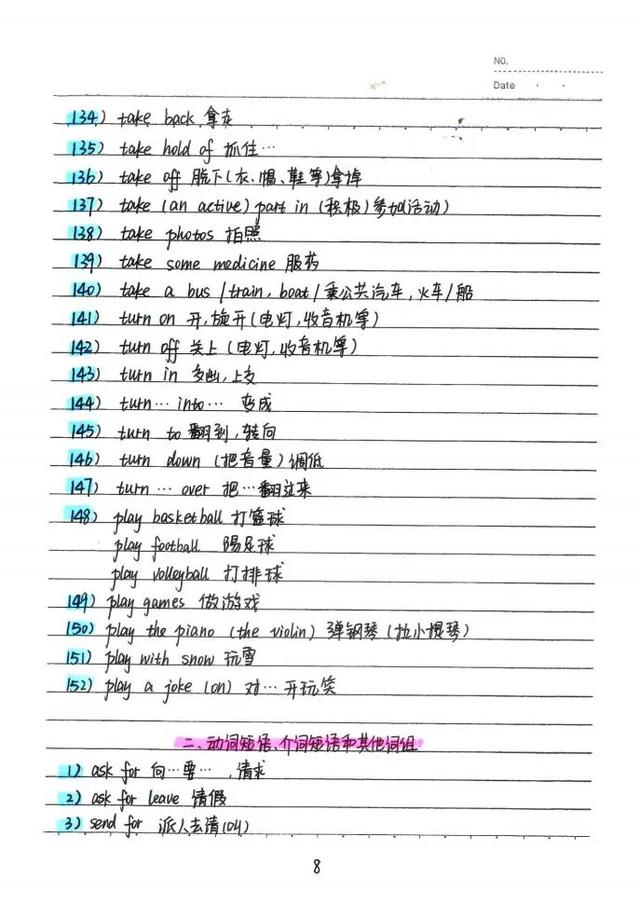 NO.
Date
134) take back 拿走
135) take hold of 抓住…
136) take off 脱下(衣、帽、鞋等)拿掉
137) take (an active) part in (积极)参加活动)
138) take photos 拍照
139) take some medicine 服药
140) take a bus / train, boat / 乘公共汽车,火车/船
141) turn on 开,旋开(电灯,收音机等)
142) turn off 关上(电灯,收音机等)
143) turn in 交出,上交
144) turn…into… 变成
145) turn to 翻到,转向
146) turn down (把音量)调低
147) turn…over 把…翻过来
148) play basketball 打篮球
play football 踢足球
play volleyball 打排球
149) play games 做游戏
150) play the piano (the violin) 弹钢琴(拉小提琴)
151) play with snow 玩雪
152) play a joke (on) 对…开玩笑
二、动词短语、介词短语和其他词组
1) ask for 向…要…,请求
2) ask for leave 请假
3) send for 派人去请(叫)
8